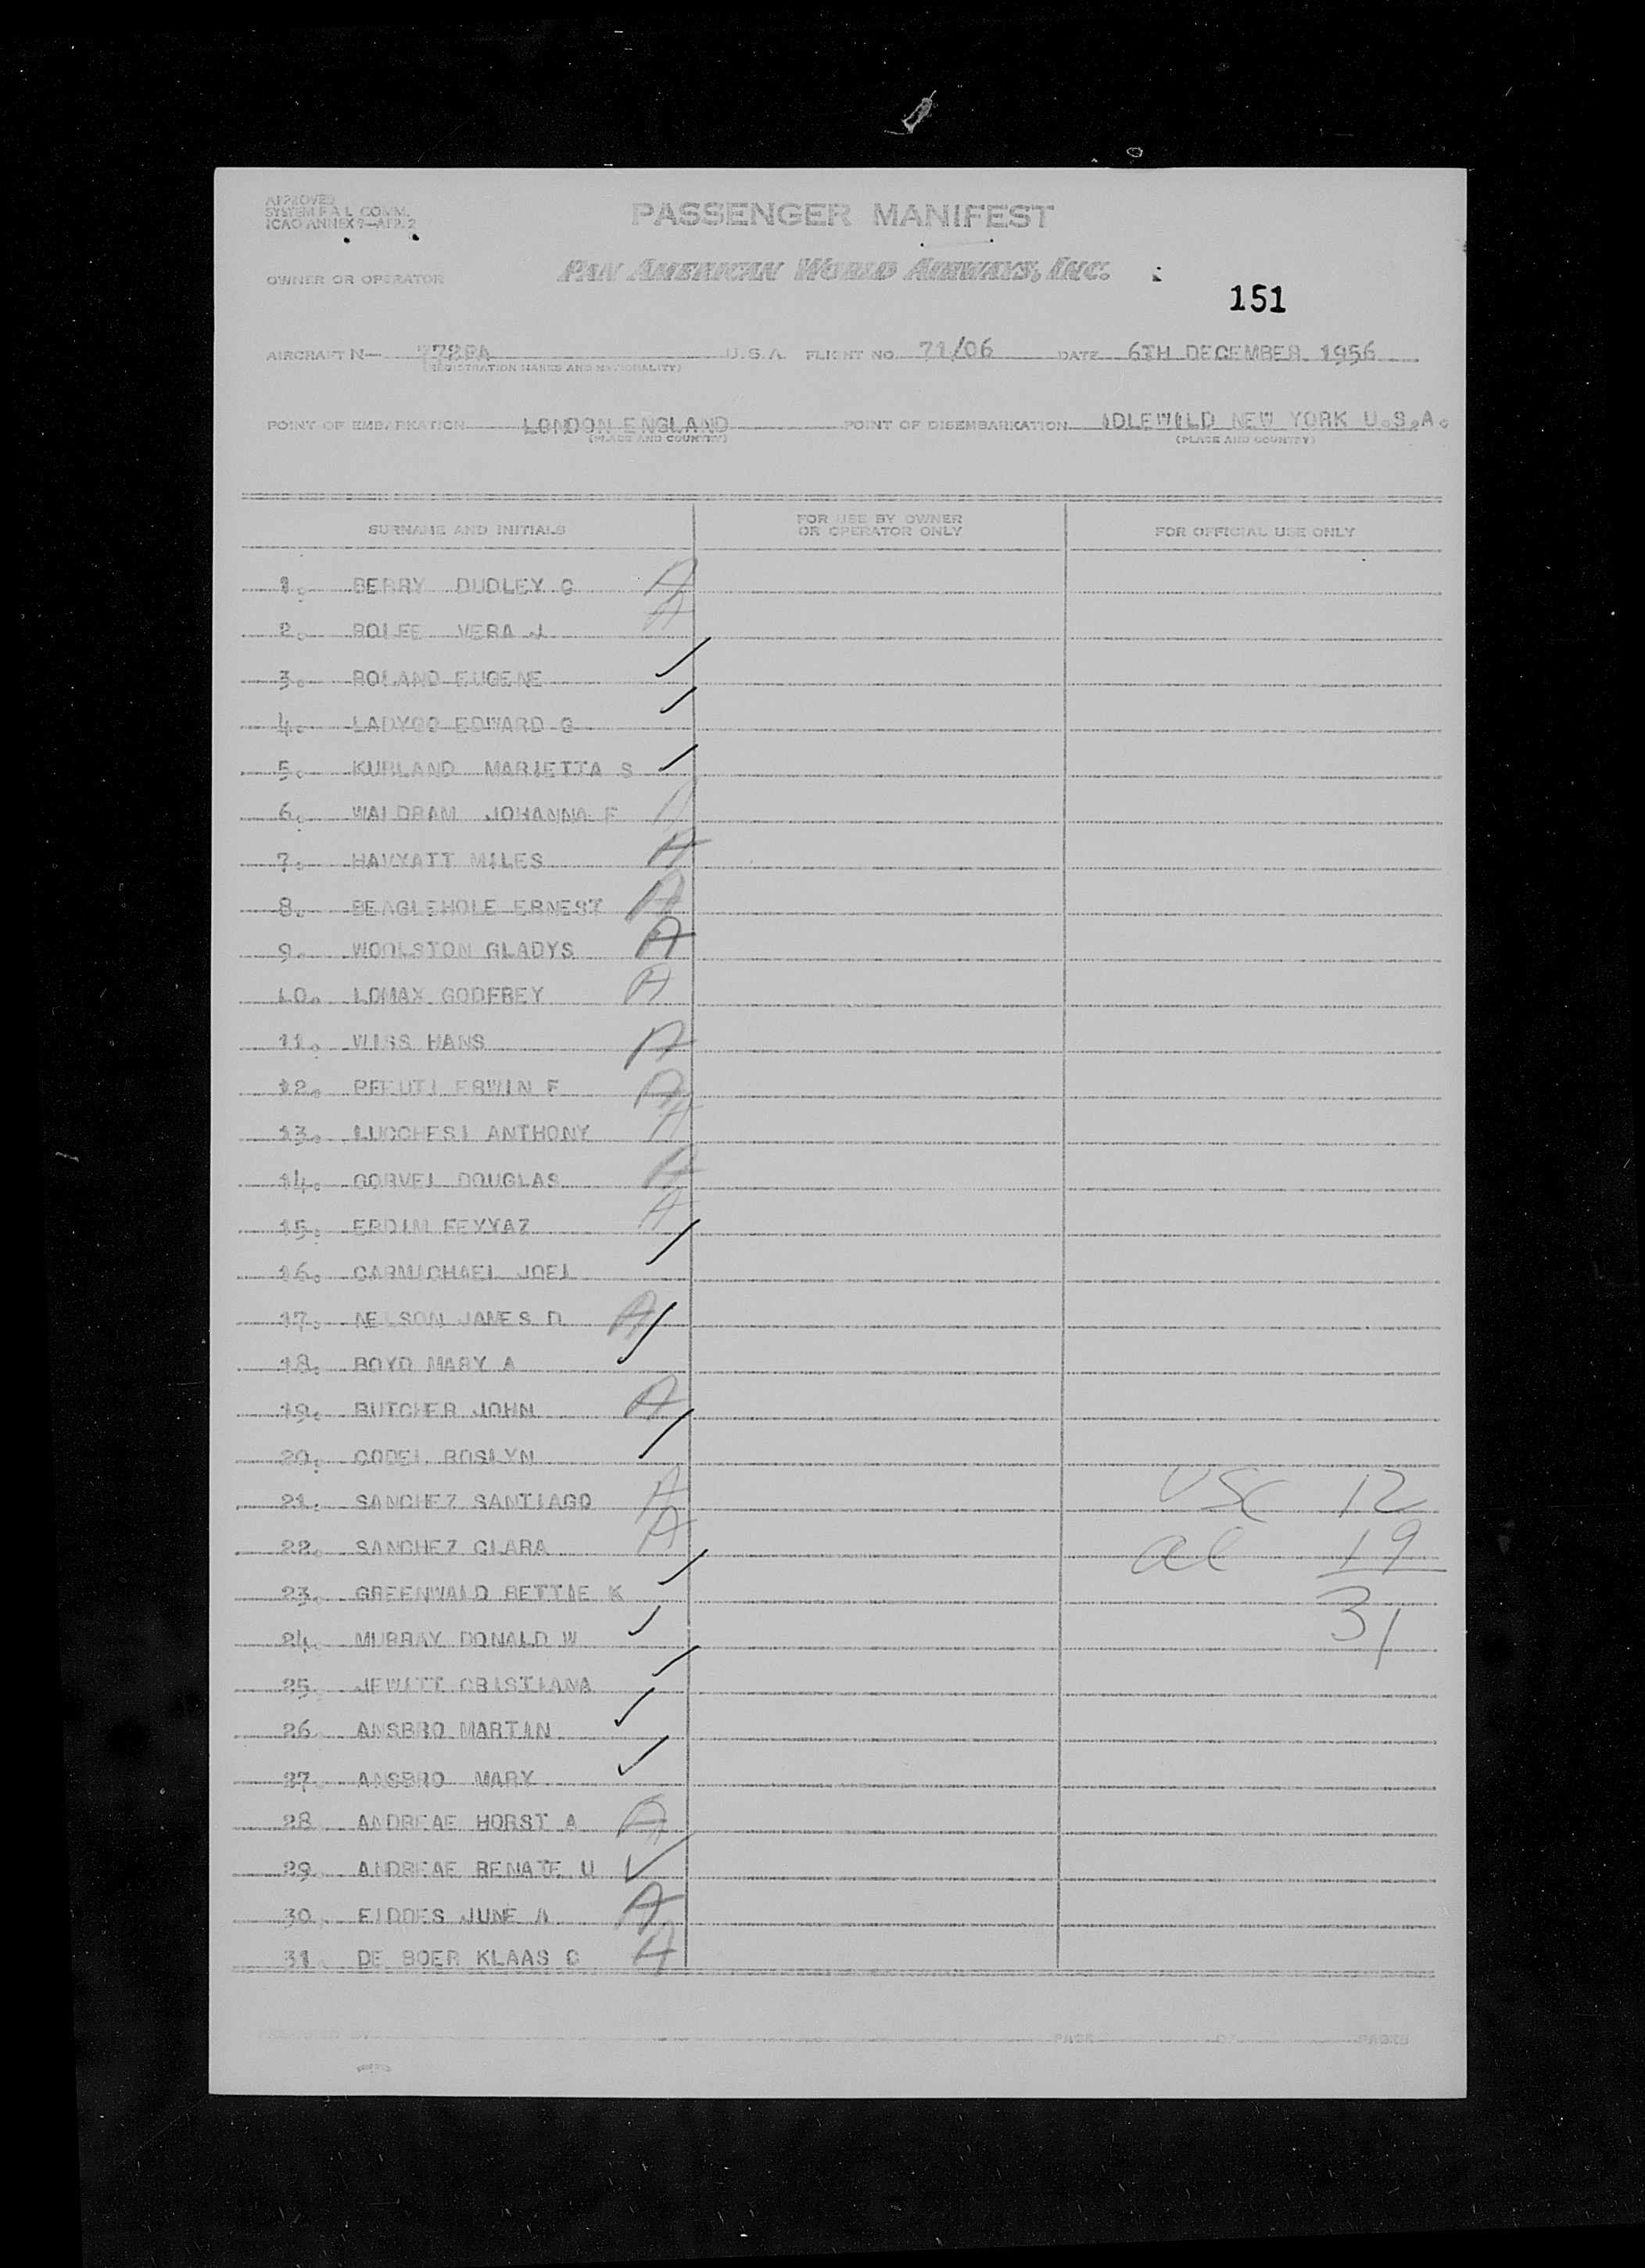 APPROVED
SYSTEM F A L COMM.
ICAO ANNEX 9—APP. 2
PASSENGER MANIFEST
OWNER OR OPERATOR
PAN AMERICAN WORLD AIRWAYS, INC.
151
AIRCRAFT N— 772PA U.S.A. FLIGHT NO. 71/06 DATE 6TH DECEMBER 1956
(REGISTRATION MARKS AND NATIONALITY)
POINT OF EMBARKATION LONDON ENGLAND POINT OF DISEMBARKATION IDLEWILD NEW YORK U.S.A.
(PLACE AND COUNTRY) (PLACE AND COUNTRY)
SURNAME AND INITIALS FOR USE BY OWNER OR OPERATOR ONLY FOR OFFICIAL USE ONLY
1. BERRY DUDLEY G A
2. VERA J A
3. BOLAND EUGENE
4. LADYGO EDWARD G
5. KURLAND MARIETTA S
6. WALDRAM JOHANNA F A
7. HAVYATT MILES A
8. BEAGLEHOLE ERNEST A
9. WOOLSTON GLADYS A
10. LOMAX GODFREY A
11. WISS HANS A
12. ERWIN F A
13. LUCCHESI ANTHONY A
14. DOUGLAS A
15. ERDIM FEYYAZ A
16. CARMICHAEL JOEL
17. NELSON JAMES D A
18. BOYD MARY A
19. BUTCHER JOHN A
20. CODEL ROSLYN
21. SANCHEZ SANTIAGO A USC 12
22. SANCHEZ CLARA A al 19
23. GREENWALD BETTIE K 31
24. MURRAY DONALD W
25. JEWITT CRISTIANA
26. ANSBRO MARTIN
27. ANSBRO MARY
28. ANDREAE HORST A A
29. ANDREAE RENATE U
30. JUNE A A
31. DE BOER KLAAS C A
PREPARED BY PAGE OF PAGES